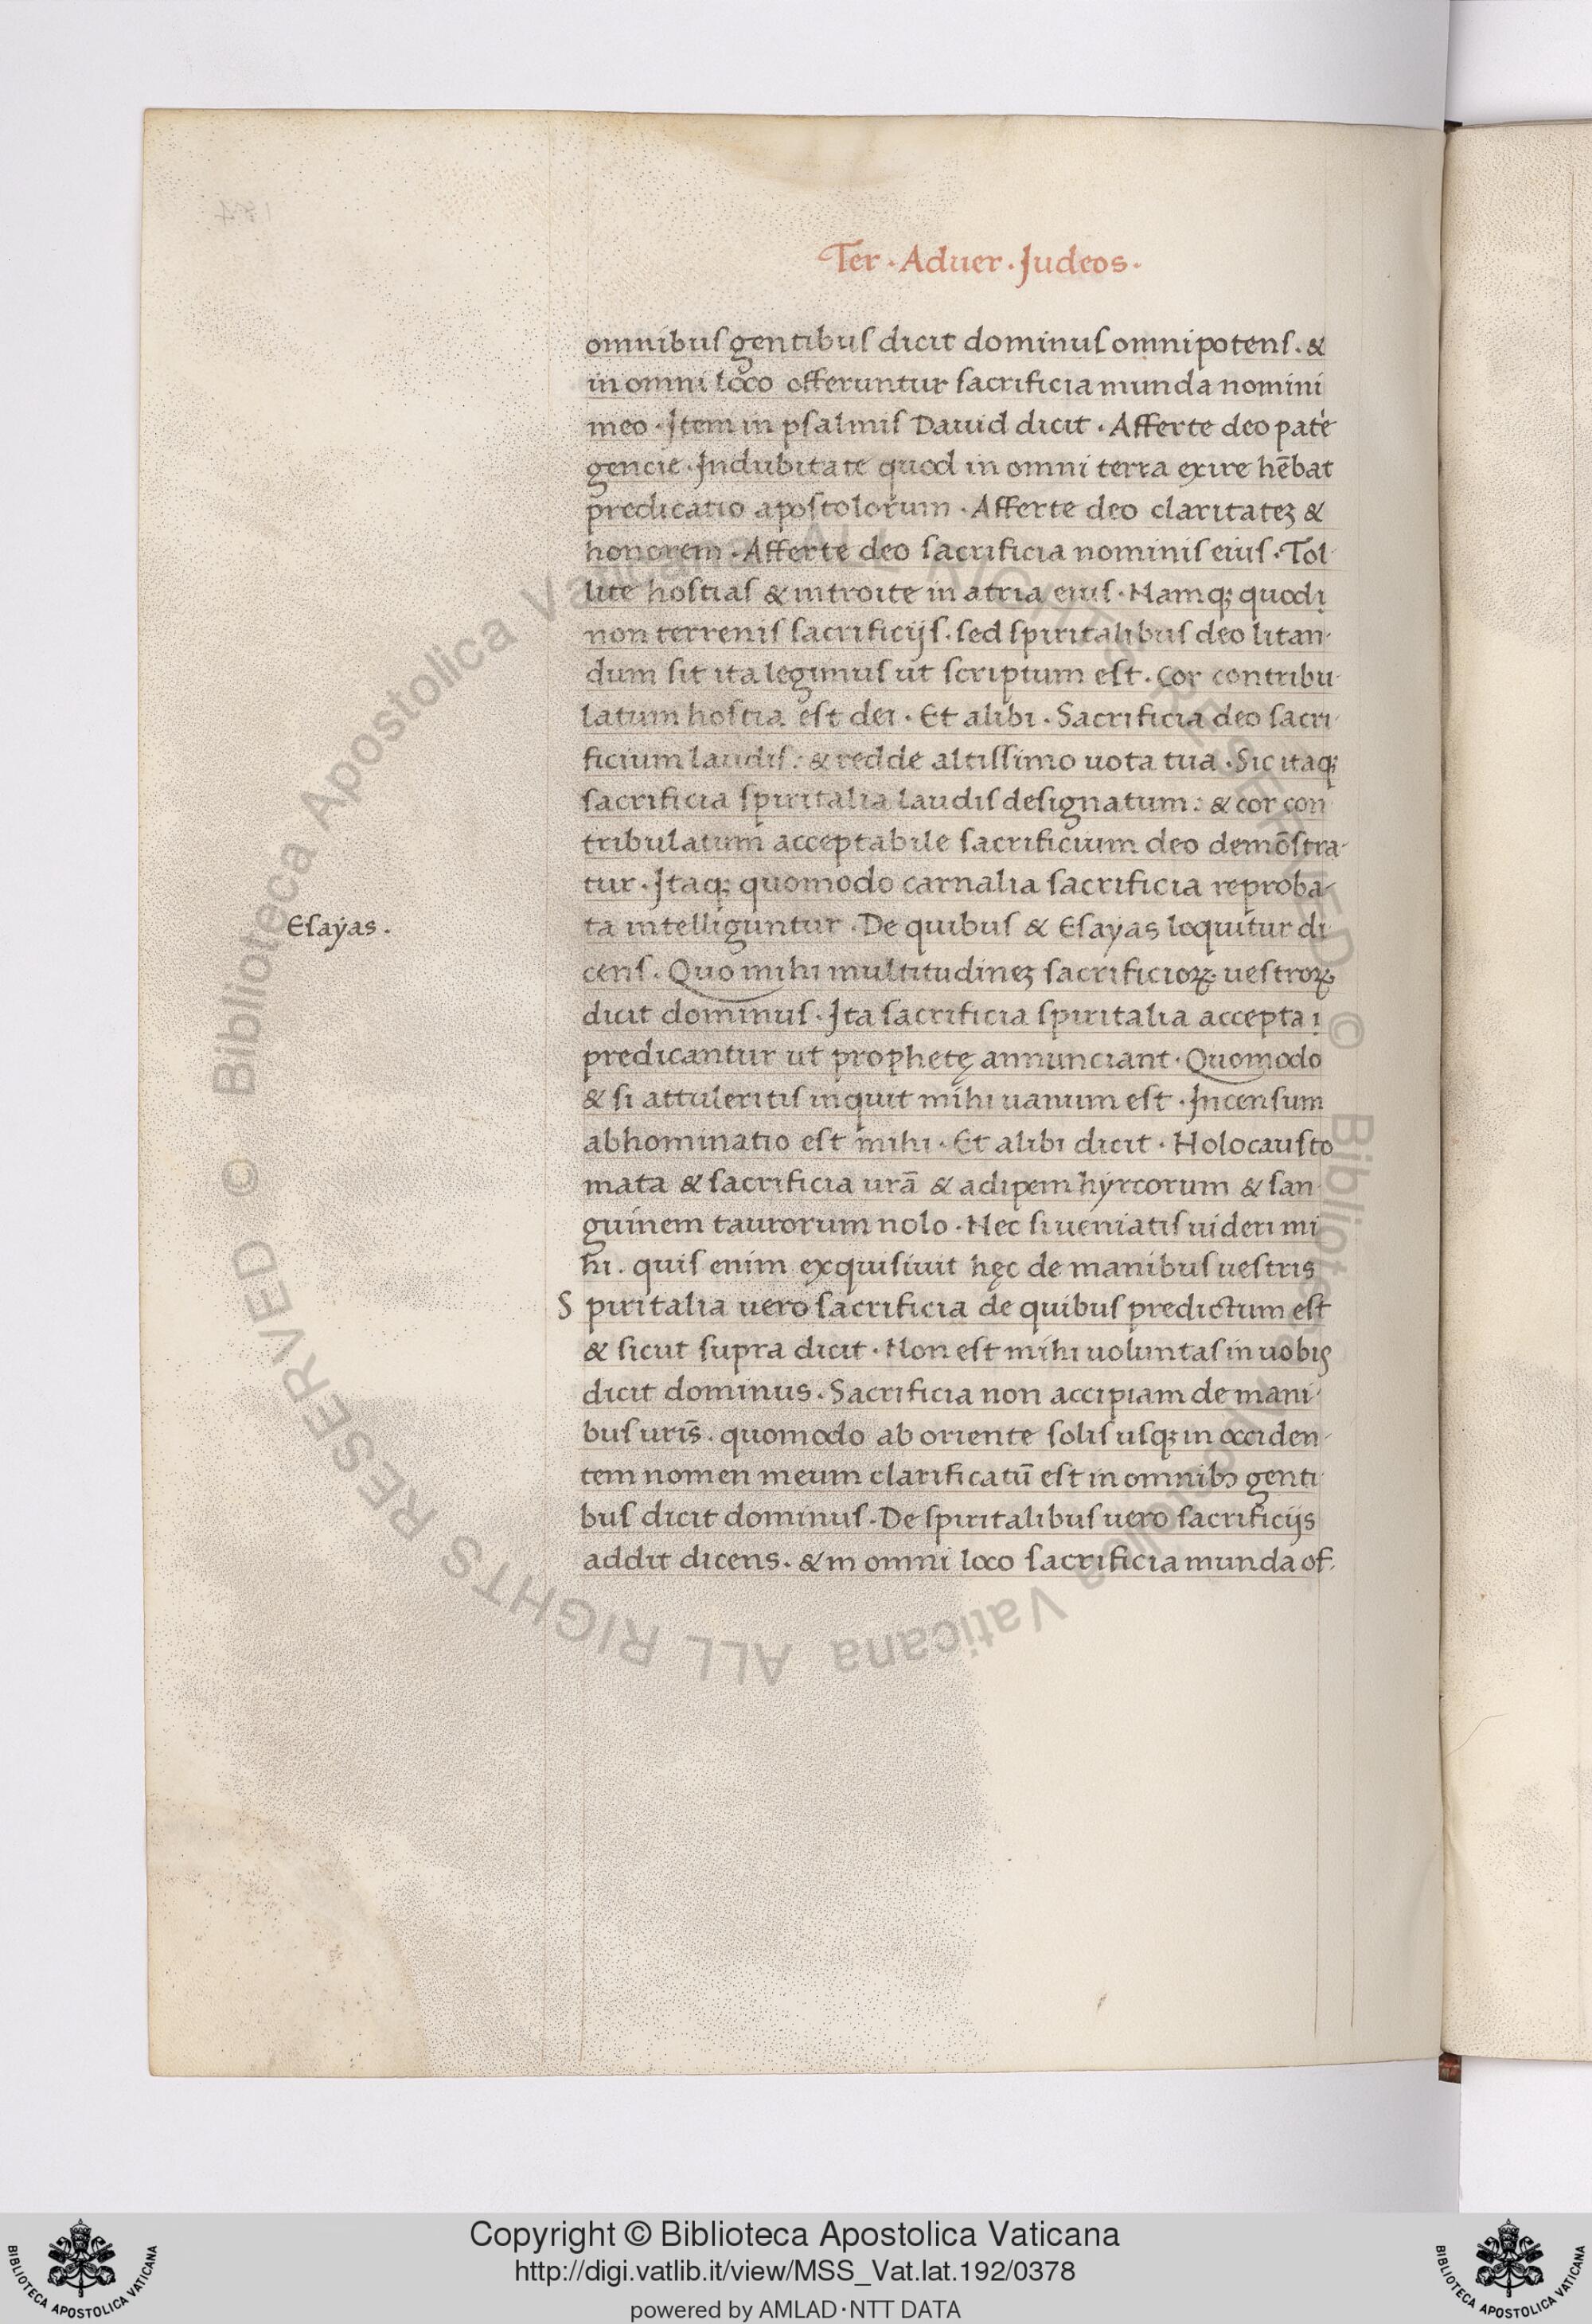 Ter · Aduer · Judeos ·
omnibus gentibus dicit dominus omnipotens . &
in omni loco offeruntur sacrificia munda nomini
meo · Item in psalmis Dauid dicit · Afferte deo patė
gencie · Indubitate quod in omni terra exire hēbat
predicatio apostolorum · Afferte deo claritateꝫ &
honorem · Afferte deo sacrificia nominis eius · Tol-
lite hostias & introite in atria eius · Namqꝫ quod
non terrenis sacrificijs . sed spiritalibus deo litan-
dum sit ita legimus ut scriptum est . Cor contribu-
latum hostia est dei · Et alibi · Sacrificia deo sacri-
ficium laudis : & redde altissimo uota tua · Sic itaqꝫ
sacrificia spiritalia laudis designatum : & cor con
tribulatum acceptabile sacrificium deo demōstra-
tur · Itaqꝫ quomodo carnalia sacrificia reproba-
Esayas .
ta intelliguntur · De quibus & Esayas loquitur di
cens . Quo mihi multitudineꝫ sacrificioꝝ uestroꝝ
dicit dominus · Ita sacrificia spiritalia accepta
predicantur ut prophetę annunciant · Quomodo
& si attuleritis inquit mihi uanum est · Incensum
abhominatio est mihi · Et alibi dicit · Holocausto
mata & sacrificia urā & adipem hyrcorum & san
guinem taurorum nolo · Nec si ueniatis uideri mi
hi . quis enim exquisiuit hęc de manibus uestris
S piritalia uero sacrificia de quibus predictum est
& sicut supra dicit · Non est mihi uoluntas in uobis
dicit dominus . Sacrificia non accipiam de mani-
bus uris̄ . quomodo ab oriente solis usqꝫ in occiden-
tem nomen meum clarificatū est in omnibꝫ genti
bus dicit dominus . De spiritalibus uero sacrificijs
addit dicens . & in omni loco sacrificia munda of-
© Biblioteca Apostolica Vaticana ALL RIGHTS RESERVED © Biblioteca Apostolica Vaticana ALL RIGHTS RESERVED
BIBLIOTECA APOSTOLICA VATICANA
Copyright © Biblioteca Apostolica Vaticana
http://digi.vatlib.it/view/MSS_Vat.lat.192/0378
powered by AMLAD·NTT DATA
BIBLIOTECA APOSTOLICA VATICANA